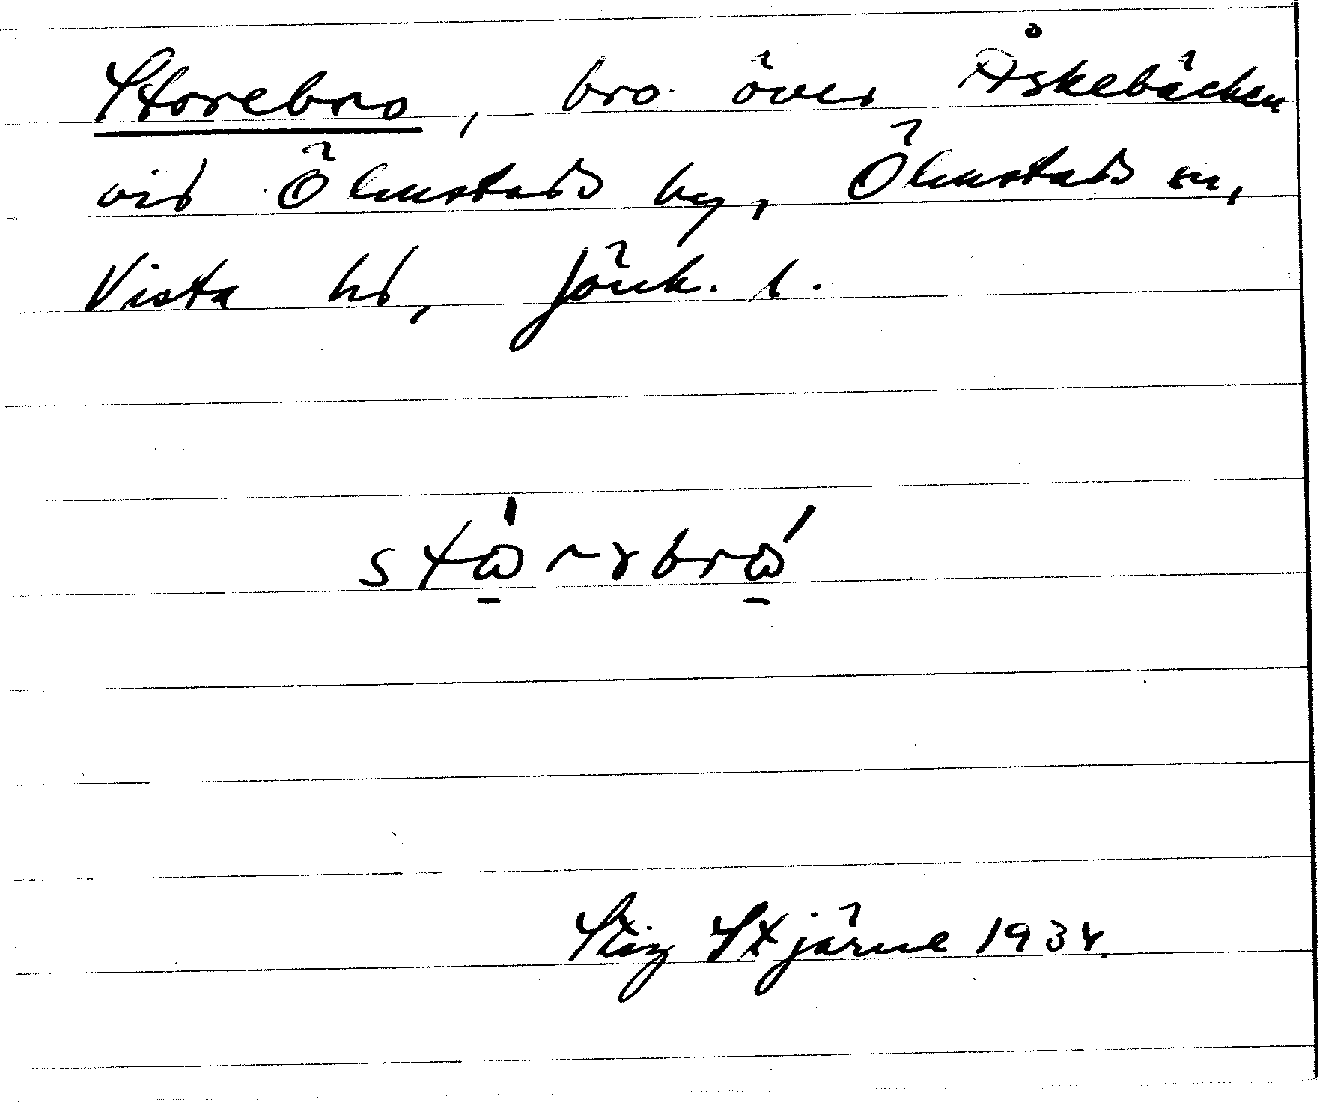 Storebro, bro över Åskebäcken
vid Ölmstads by, Ölmstads sn,
Vista hd, Jönk. l.
Stig Stjärne 1934.